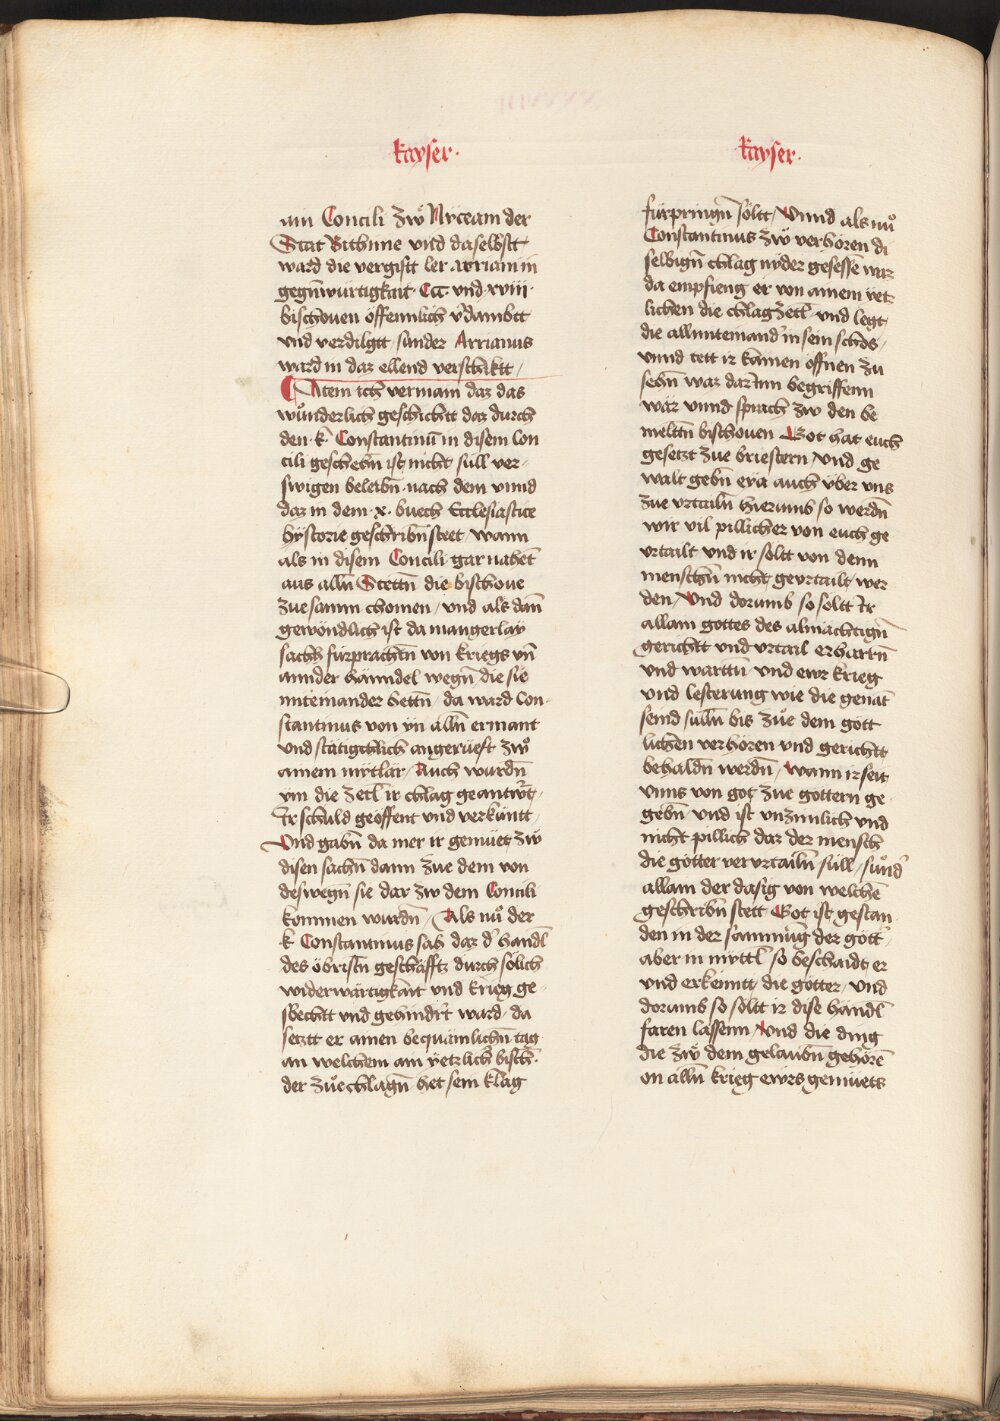 kayser.
ain Concili zẘ Niceam der
Stat Bithinie vnd daselbstt
ward die vergifft ler Arriani in
gegn̄würtigkait CCC vnd xviii.
bischouen offennlich v̄dambtt
vnd verdilgtt / sunder Arrianus
ward in daz ellend verschiktt /
Item ich vermain daz das
wůnderlich geschichtt daz durch
den k̄ Constantinū in disem Con
cili gescheh̄n ist nicht süll ver-
swigen beleib̄n nach dem vnnd
daz in dem x. buech Ecclesiastice
hystorie geschrib̄n steet / wann
als in disem Concili gar nahet̄
aus alln̄ Stettn̄ die bischoue
zuesamm chomen / vnd als dan̄
gewöndlich ist da mangerlay
sach fürprachtn̄ von kriegs vn̄
annder hänndel wegn̄ die sie
miteinander hettn̄ / da ward Con-
stantinus von yn alln̄ ermant
vnd stätigchlich angerüeft zẘ
ainem mytlär / Auch wurdn̄
ym die zetl ir chlag geantw̄rt /
Ir schuld geoffent vnd verkuntt /
Vnd gabn̄ da mer ir gemüet zẘ
disen sachn̄ dann zue dem von
deswegn̄ sie dar zw dem Concili
kommen wurdn̄ / Als nů der
k̄ Constantinus sah daz d' handl̄
des öbristn̄ geschäffts durch sölich
widerwärtigkait vnd krieg ge-
swechtt vnd gehindr̄t ward / da
setztt er ainen bequämlichn̄ tag
an welchem ain yetzlich bisch̄.
der zůechlagn̄ het sein klag
kayser.
fürpringn̄ söltt / Vnnd als nů
Constantinus zẘ verhören di
selbign̄ chlag nyder gesessē waz
da empfieng er von ainem yetz
lichen die chlagzett̄l vnd legt
die allmiteinand' in sein schos /
vnnd tett ir kainen offnen zu
sehn̄ waz dar Inn begriffenn
wär vnnd sprach zw den be
meltn̄ bischouen Got hat euch
gesetzt zue briestern / vnd ge
walt gebn̄ eya auch vber vns
zue vrtailn̄ hierumb so werdn̄
wir vil pillicher von euch ge
vrtailt vnd ir soltt von denn
menschn̄ nicht gevrtailt wer
den / Vnd dorumb so soltt Ir
allain gottes des almächtign̄
gerichtt vnd vrtail erharrn̄
vnd warttn̄ vnd ewr krieg
vnd lesterung wie die genat̄
seind sülln̄ bis zůe dem gott
lichen verhören vnd gerichtt
behaldn̄ werdn̄ / wann ir seit
vnns von got zue göttern ge-
gebn̄ / vnd ist vnzimlich vnd
nicht pillich daz der mensch
die götter vervrtailn̄ süll / sůnd'
allain der dasig von welchē
geschribn̄ stett Got ist gestan-
den in der samnūg der gött'
aber in myttl̄ so beschaidt er
vnd erkenntt die götter / vnd
dorumb so söltt ir dise händl̄
faren lassenn / Vnd die ding
die zẘ dem gelaubn̄ gehörē
on alln̄ krieg ewrs gemüets